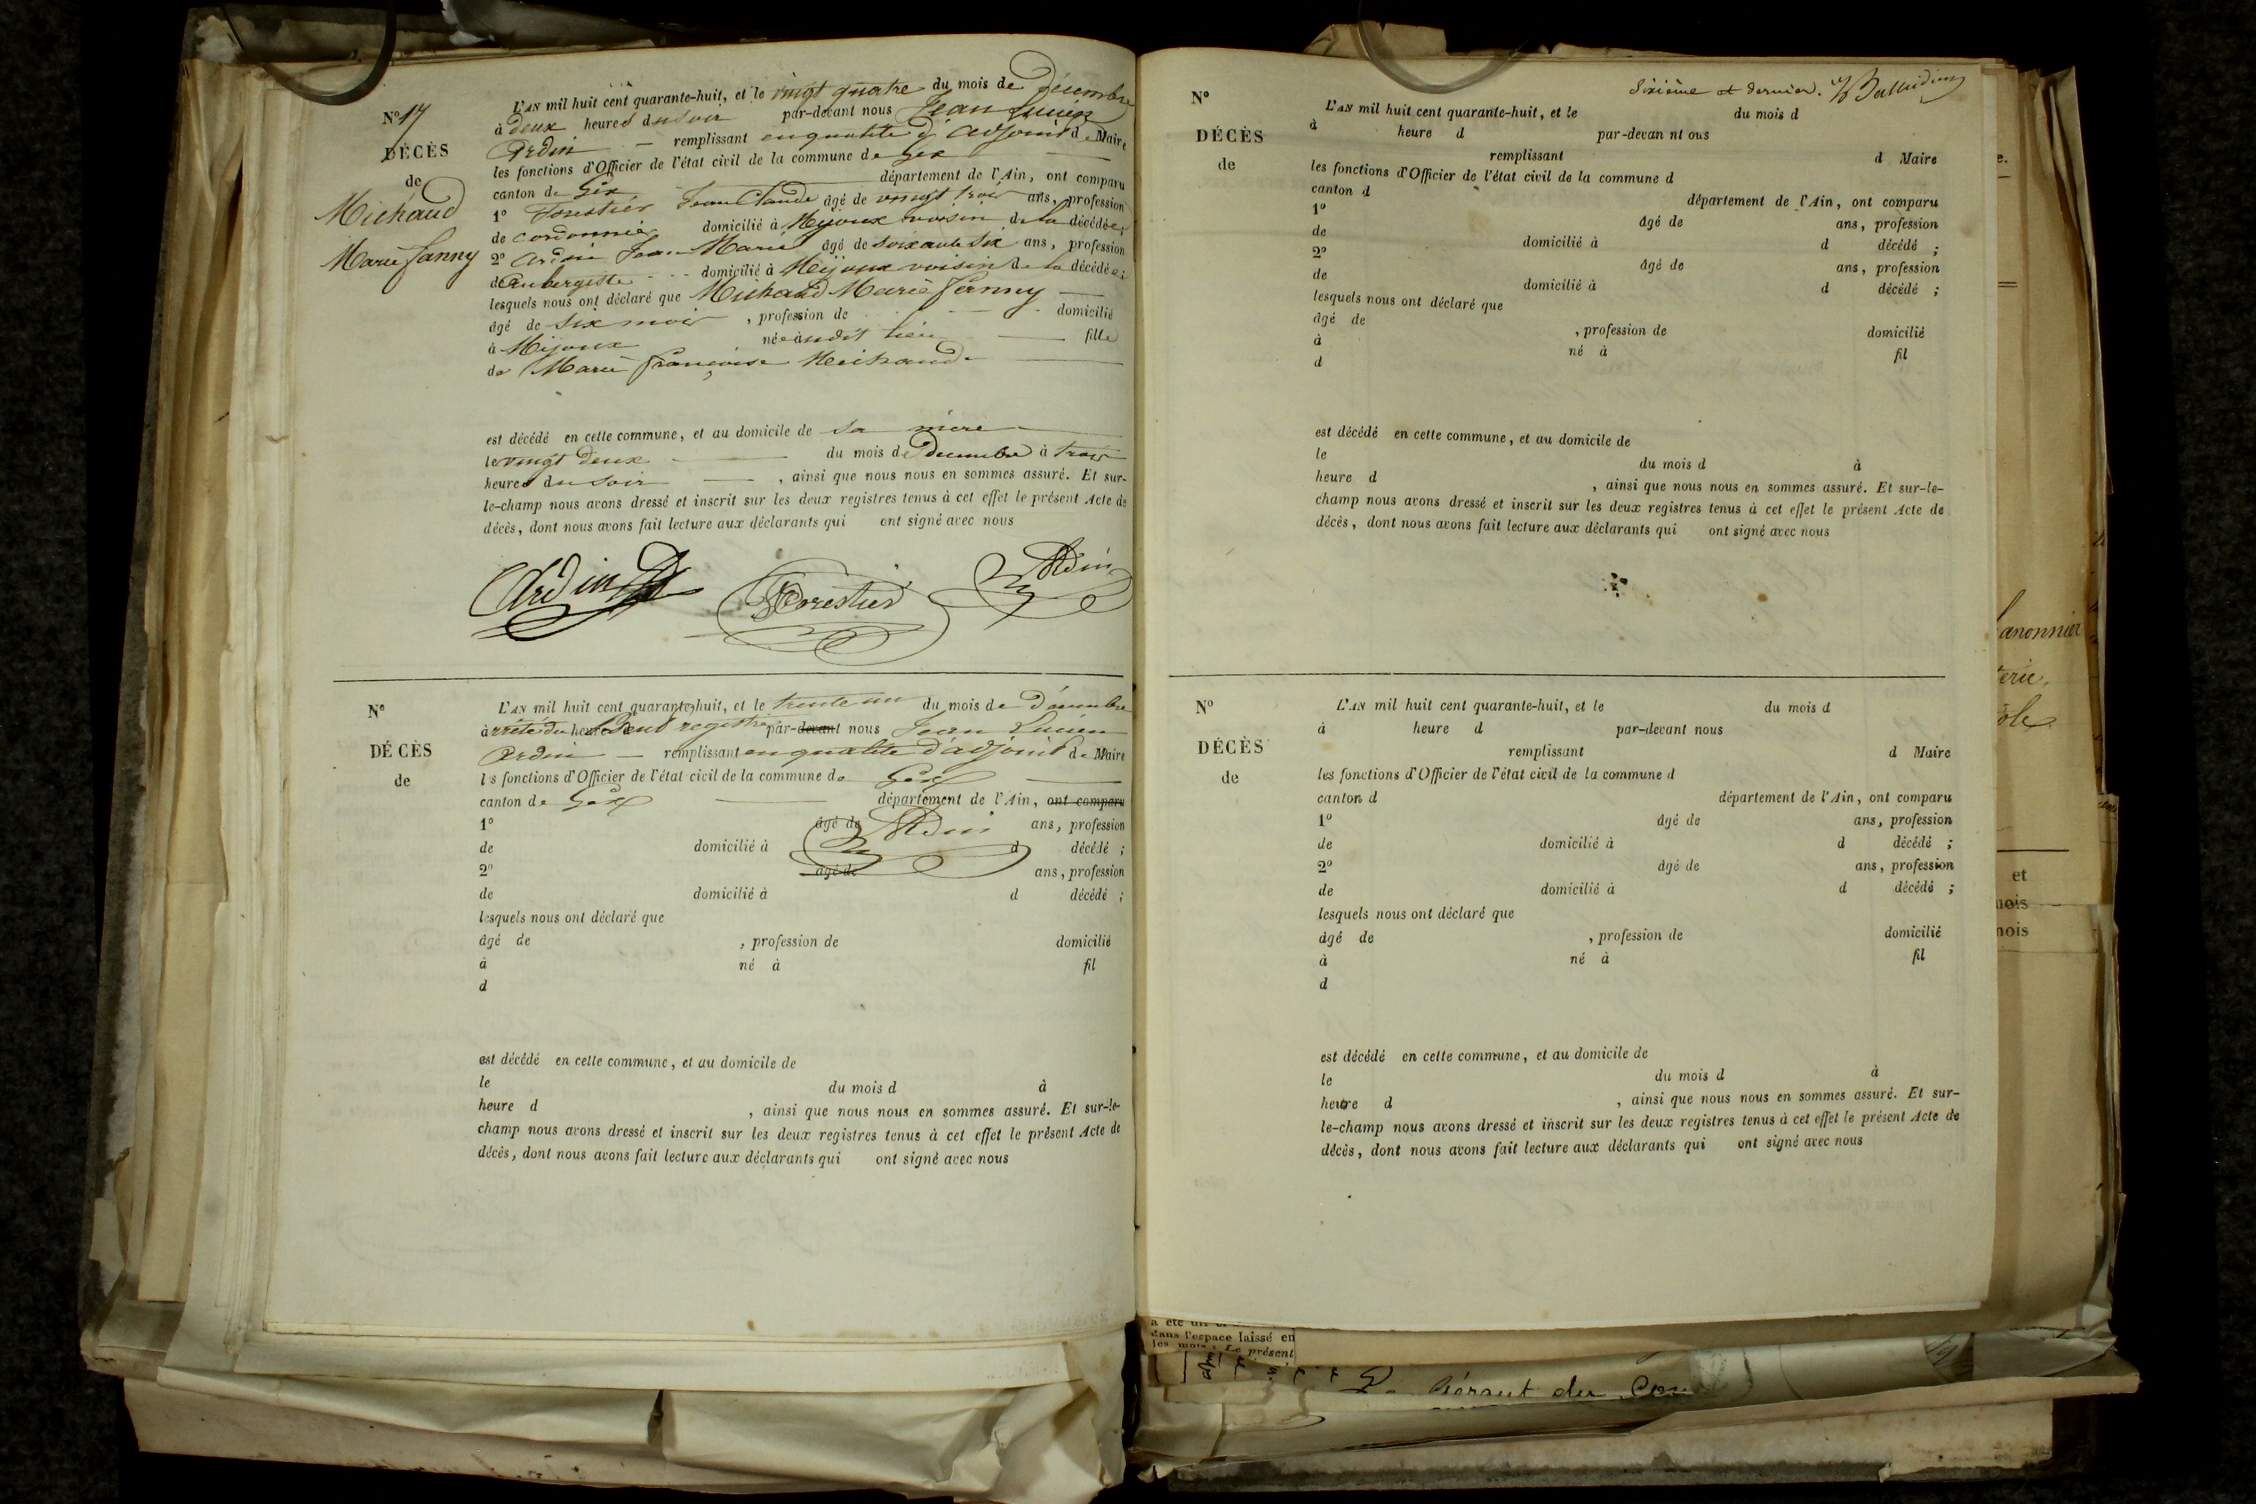 N° 17
DÉCÈS
de
Michaud
Marie fanny
L'AN mil huit cent quarante-huit, et le vingt quatre du mois de décembre
à deux heures du soir par-devant nous Jean Lucien
Ardin — remplissant en qualité d'adjoint de Maire
les fonctions d'Officier de l'état civil de la commune de Gex
canton de Gex département de l'Ain, ont comparu
1° Forestier Jean Claude âgé de vingt trois ans, profession
de cordonnier domicilié à Mijoux voisin de la décédée;
2° Ardin Jean Marie âgé de soixante six ans, profession
d'Aubergiste domicilié à Mijoux voisin de la décédée;
lesquels nous ont déclaré que Michaud Marie fanny
âgé de six mois, profession de domicilié
à Mijoux née audit lieu fille
de Marie françoise Michaud
est décédé en cette commune, et au domicile de sa mère
le vingt deux du mois de Décembre à trois
heures du soir, ainsi que nous nous en sommes assuré. Et sur-
le-champ nous avons dressé et inscrit sur les deux registres tenus à cet effet le présent Acte de
décès, dont nous avons fait lecture aux déclarants qui ont signé avec nous
Ardin Forestier Ardin
N°
DÉCÈS
de
L'AN mil huit cent quarante-huit, et le trente un du mois de Décembre
à arrêté du heure deux registre par-devant nous Jean Lucien
Ardin — remplissant en qualité d'adjoint de Maire
les fonctions d'Officier de l'état civil de la commune de Gex
canton de Gex département de l'Ain, ont comparu
1° âgé de Ardin ans, profession
de domicilié à d décédé ;
2° âgé de ans, profession
de domicilié à d décédé ;
lesquels nous ont déclaré que
âgé de , profession de domicilié
à né à fil
d
est décédé en cette commune, et au domicile de
le du mois d à
heure d , ainsi que nous nous en sommes assuré. Et sur-le-
champ nous avons dressé et inscrit sur les deux registres tenus à cet effet le présent Acte de
décès, dont nous avons fait lecture aux déclarants qui ont signé avec nous
Sixième et dernier.
N°
DÉCÈS
de
L'AN mil huit cent quarante-huit, et le du mois d
à heure d par-devan nt ous
remplissant d Maire
les fonctions d'Officier de l'état civil de la commune d
canton d département de l'Ain, ont comparu
1° âgé de ans, profession
de domicilié à d décédé ;
2° âgé de ans, profession
de domicilié à d décédé ;
lesquels nous ont déclaré que
âgé de , profession de domicilié
à né à fil
d
est décédé en cette commune, et au domicile de
le du mois d à
heure d , ainsi que nous nous en sommes assuré. Et sur-le-
champ nous avons dressé et inscrit sur les deux registres tenus à cet effet le présent Acte de
décès, dont nous avons fait lecture aux déclarants qui ont signé avec nous
N°
DÉCÈS
de
L'AN mil huit cent quarante-huit, et le du mois d
à heure d par-devant nous
remplissant d Maire
les fonctions d'Officier de l'état civil de la commune d
canton d département de l'Ain, ont comparu
1° âgé de ans, profession
de domicilié à d décédé ;
2° âgé de ans, profession
de domicilié à d décédé ;
lesquels nous ont déclaré que
âgé de , profession de domicilié
à né à fil
d
est décédé en cette commune, et au domicile de
le du mois d à
heure d , ainsi que nous nous en sommes assuré. Et sur-
le-champ nous avons dressé et inscrit sur les deux registres tenus à cet effet le présent Acte de
décès, dont nous avons fait lecture aux déclarants qui ont signé avec nous
anonnier
et
mois
mois
dans l'espace laissé en
Le présent